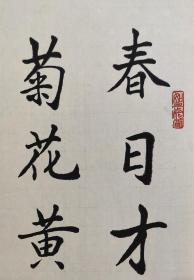 春日才
菊花黄